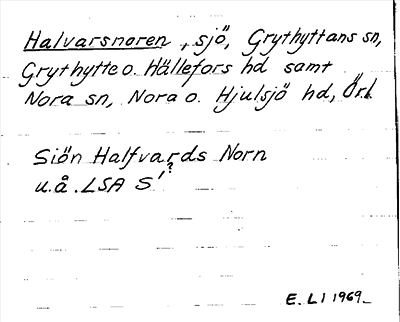 Halvarsnoren, sjö, Grythyttans sn,
Grythytte o. Hällefors hd samt
Nora sn, Nora o. Hjulsjö hd, Örl.
Siön Halfvards Norn
?
u.å. LSA S'
E. L I 1969